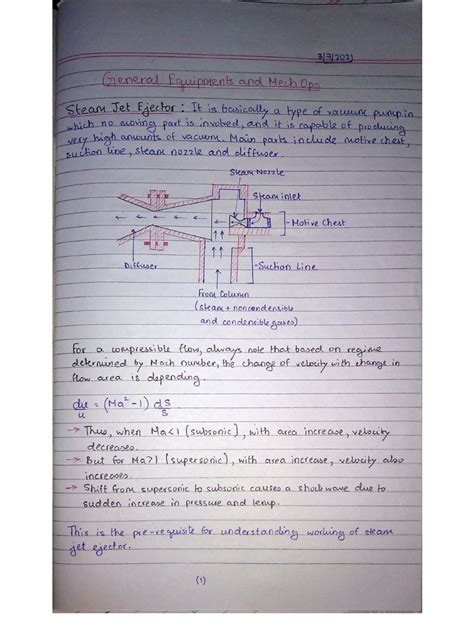 3/7/2021
General Equipments and Mech Ops
Steam Jet Ejector : It is basically a type of vacuum pump in
which no moving part is involved, and it is capable of producing
very high amounts of vacuum. Main parts include motive chest,
suction line, steam nozzle and diffuser.
Steam Nozzle
Steam inlet
Motive Chest
Diffuser
Suction Line
From Column
(steam + noncondensible
and condensible gases)
For a compressible flow, always note that based on regime
determined by Mach number, the change of velocity with change in
flow area is depending.
du/u = (Ma² - 1) dS/S
→ Thus, when Ma<1 (subsonic), with area increase, velocity
decreases.
→ But for Ma>1 (supersonic), with area increase, velocity also
increases.
→ Shift from supersonic to subsonic causes a shockwave due to
sudden increase in pressure and temp.
This is the pre-requisite for understanding working of steam
jet ejector.
(1)